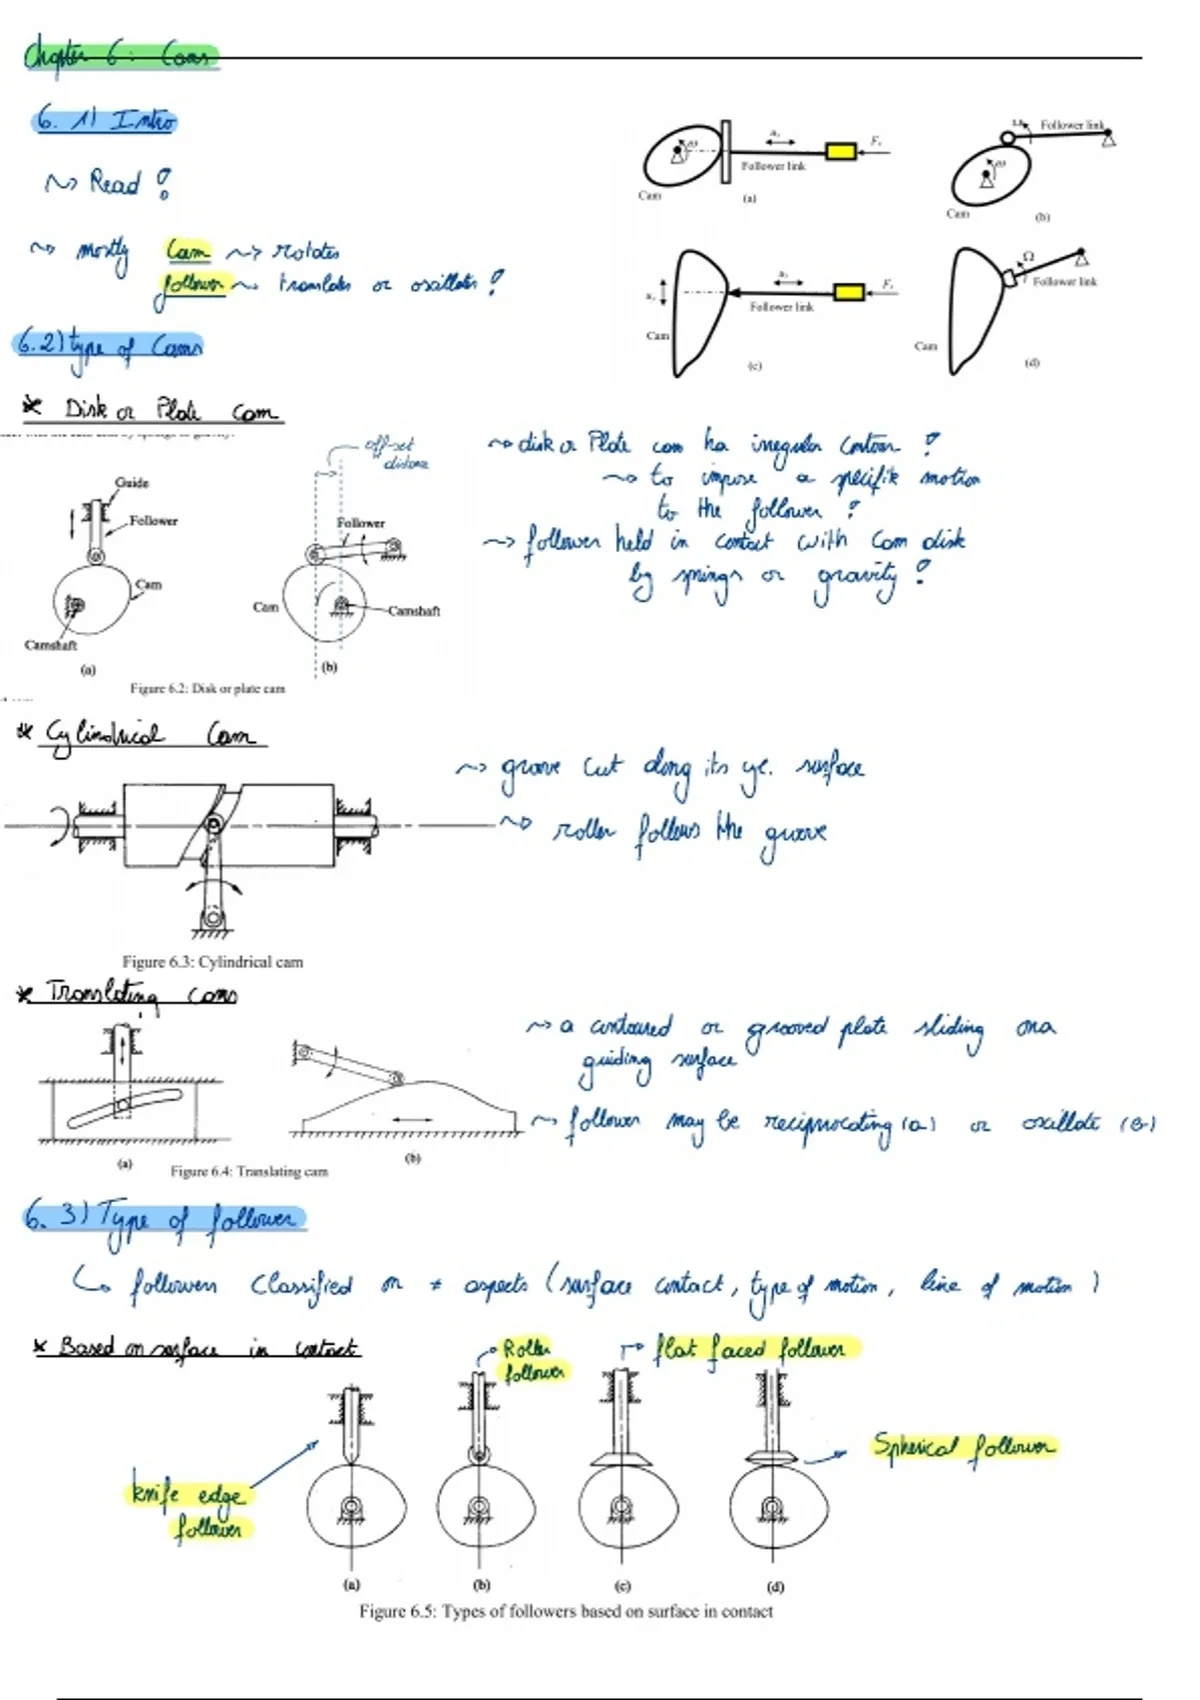 Chapter 6: Cams
6. 1) Intro
~> Read !
~> mostly Cam ~> rotates
follower ~ translates or oscillates !
ω
Follower link
Cam
(a)
Follower link
ω
Cam
(b)
Follower link
Cam
(c)
Ω
Follower link
Cam
(d)
6.2) type of Cams
* Disk or Plate Cam
off-set
distance
Guide
Follower
Cam
Camshaft
(a)
Follower
Cam
Camshaft
(b)
Figure 6.2: Disk or plate cam
~> disk or Plate cam ha irregular contour !
~> to impose a specifik motion
to the follower !
~> follower held in contact with Cam disk
by springs or gravity !
* Cylindrical Cam
~> groove cut along its cyc. surface
~> roller follows the groove
Figure 6.3: Cylindrical cam
* Translating cams
~> a contoured or grooved plate sliding on a
guiding surface
~> follower may be reciprocating (a) or oscillate (b)
(a)
(b)
Figure 6.4: Translating cam
6. 3) Type of follower
↳ followers classified on ≠ aspects (surface contact, type of motion, line of motion)
* Based on surface in contact
Roller
follower
flat faced follower
Spherical follower
knife edge
follower
(a) (b) (c) (d)
Figure 6.5: Types of followers based on surface in contact